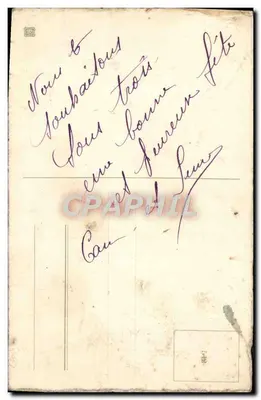 Nous te
souhaitons
tous trois
une bonne
et heureuse fête
et
CARPHIL